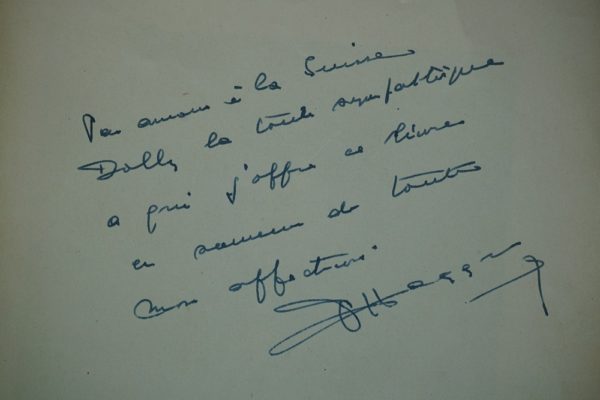 Par amour à la Suisse
Dolly la toute sympathique
a qui j'offre ce livre
en souvenir de toute
mon affection.